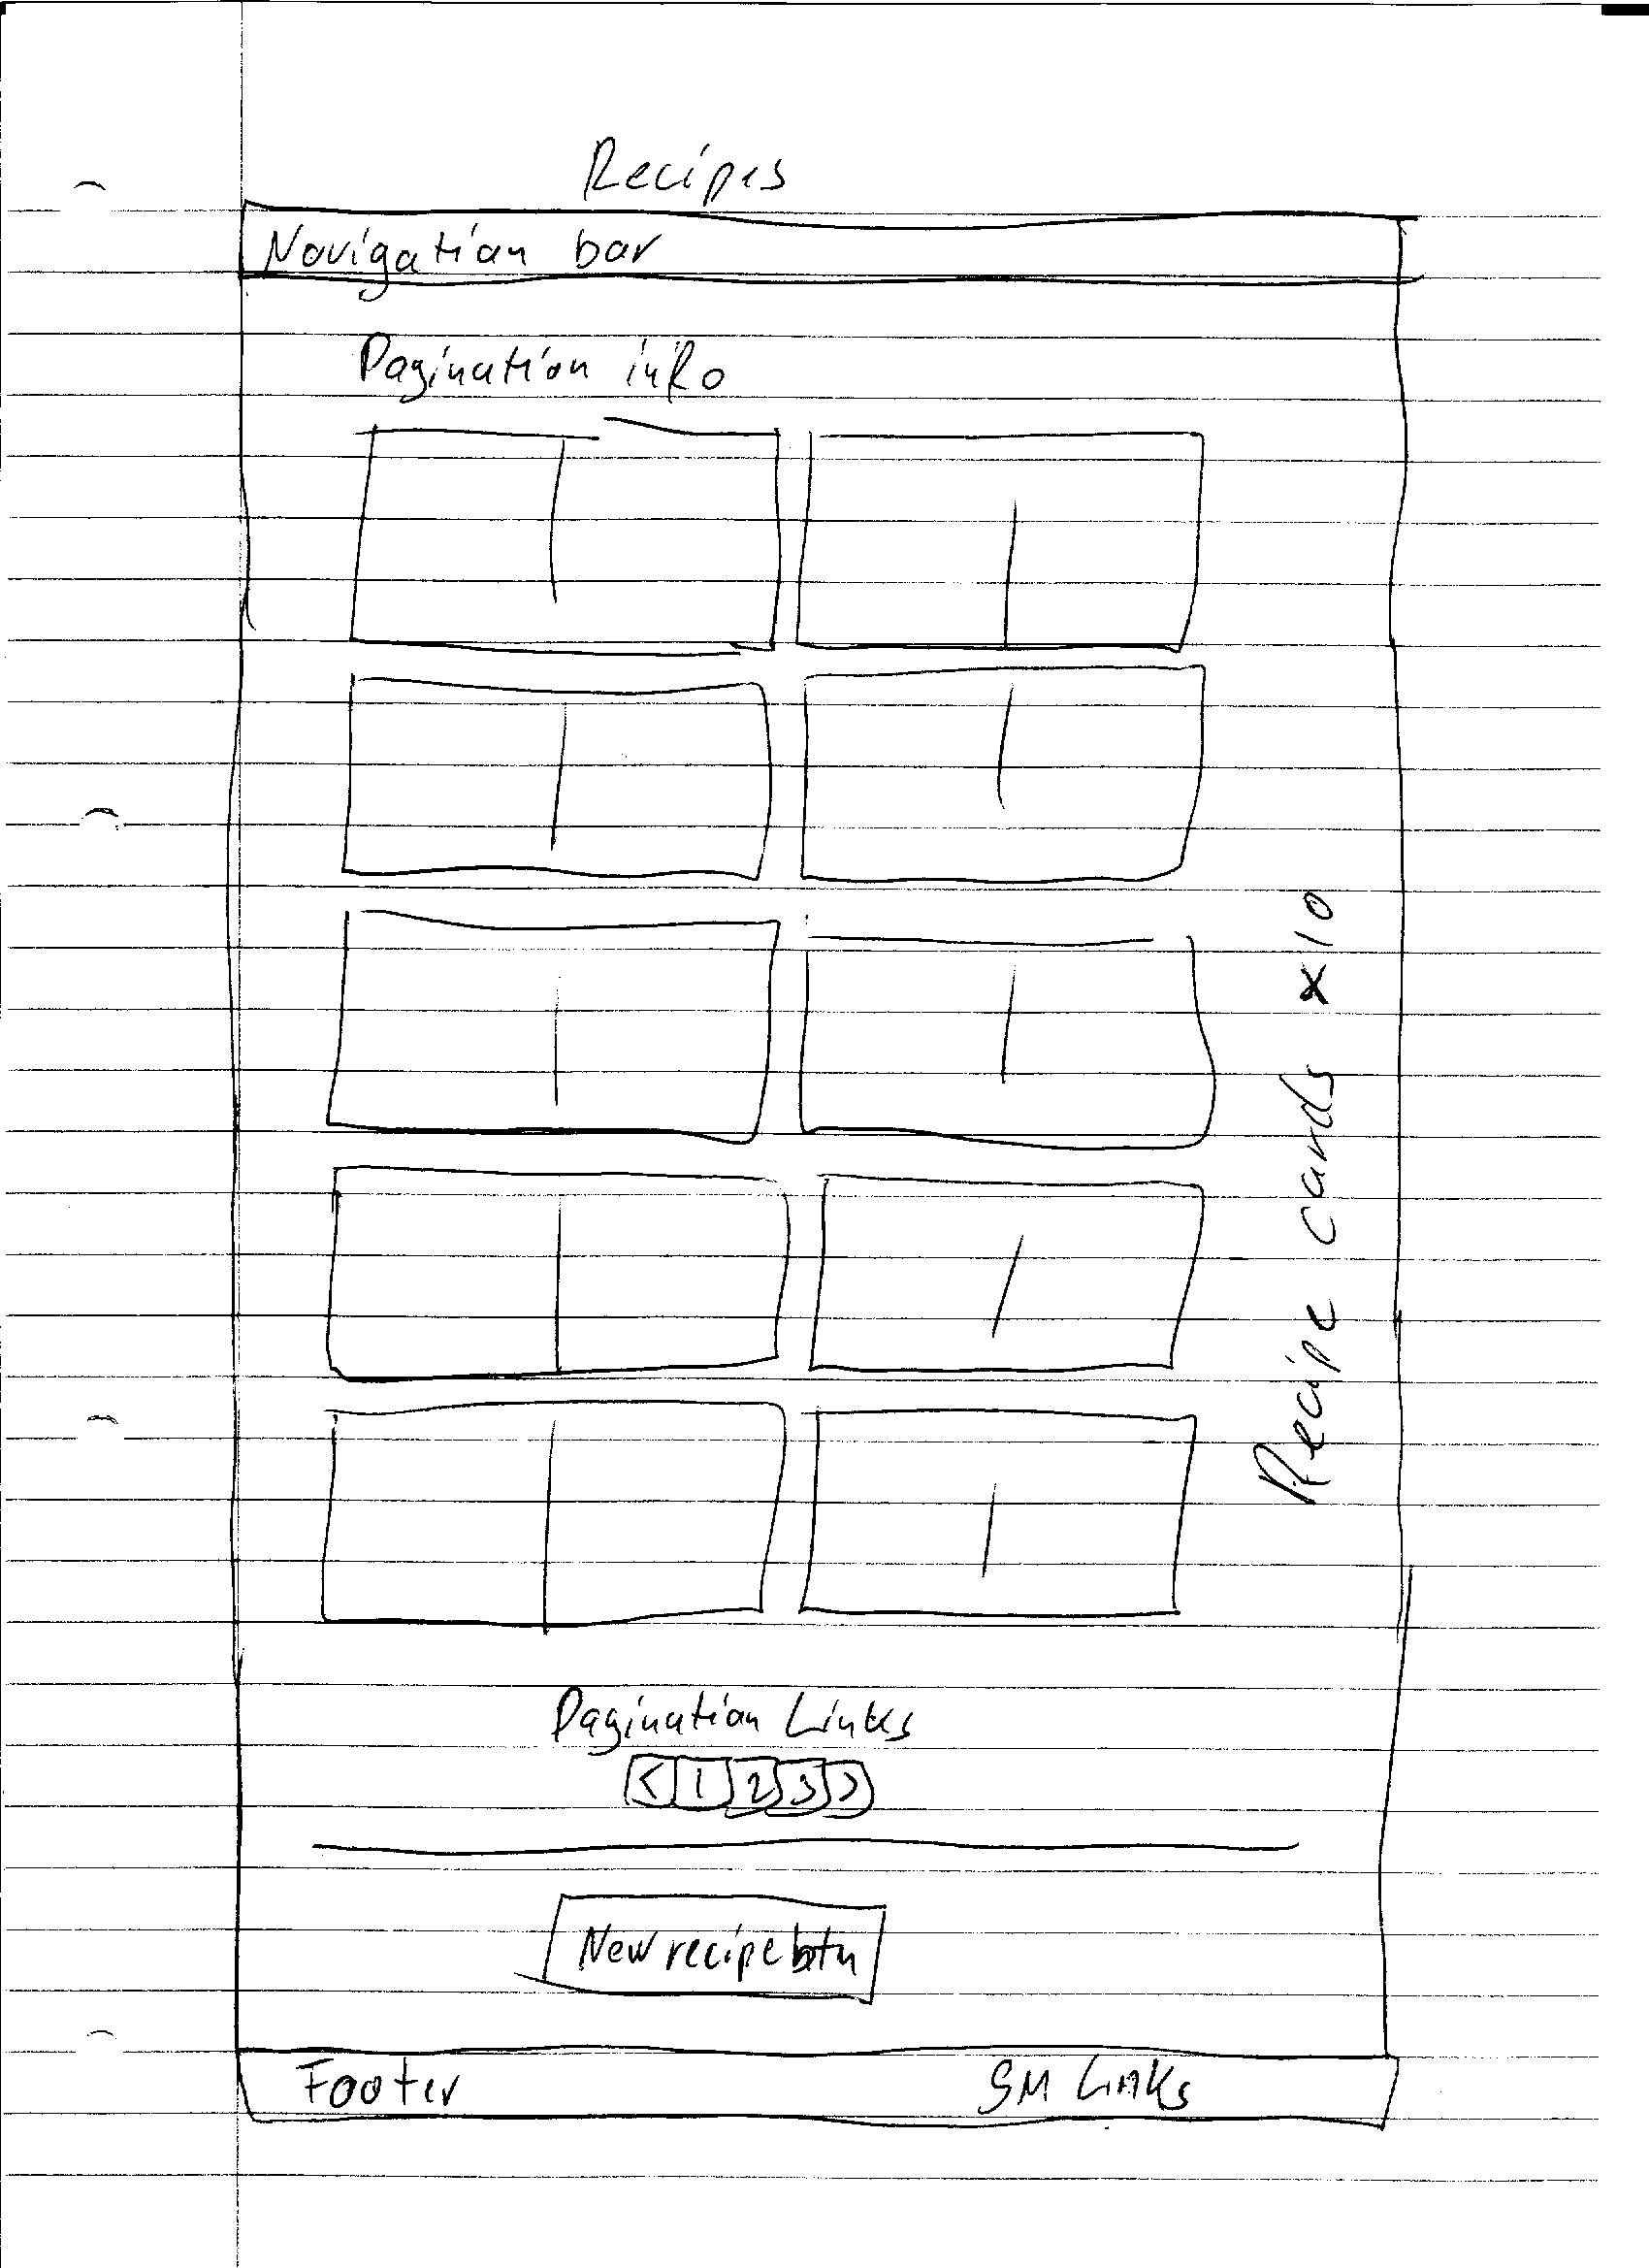 Recipes
Navigation bar
Pagination info
Recipe cards x10
Pagination Links
< 1 2 3 >
New recipe btn
Footer SM Links